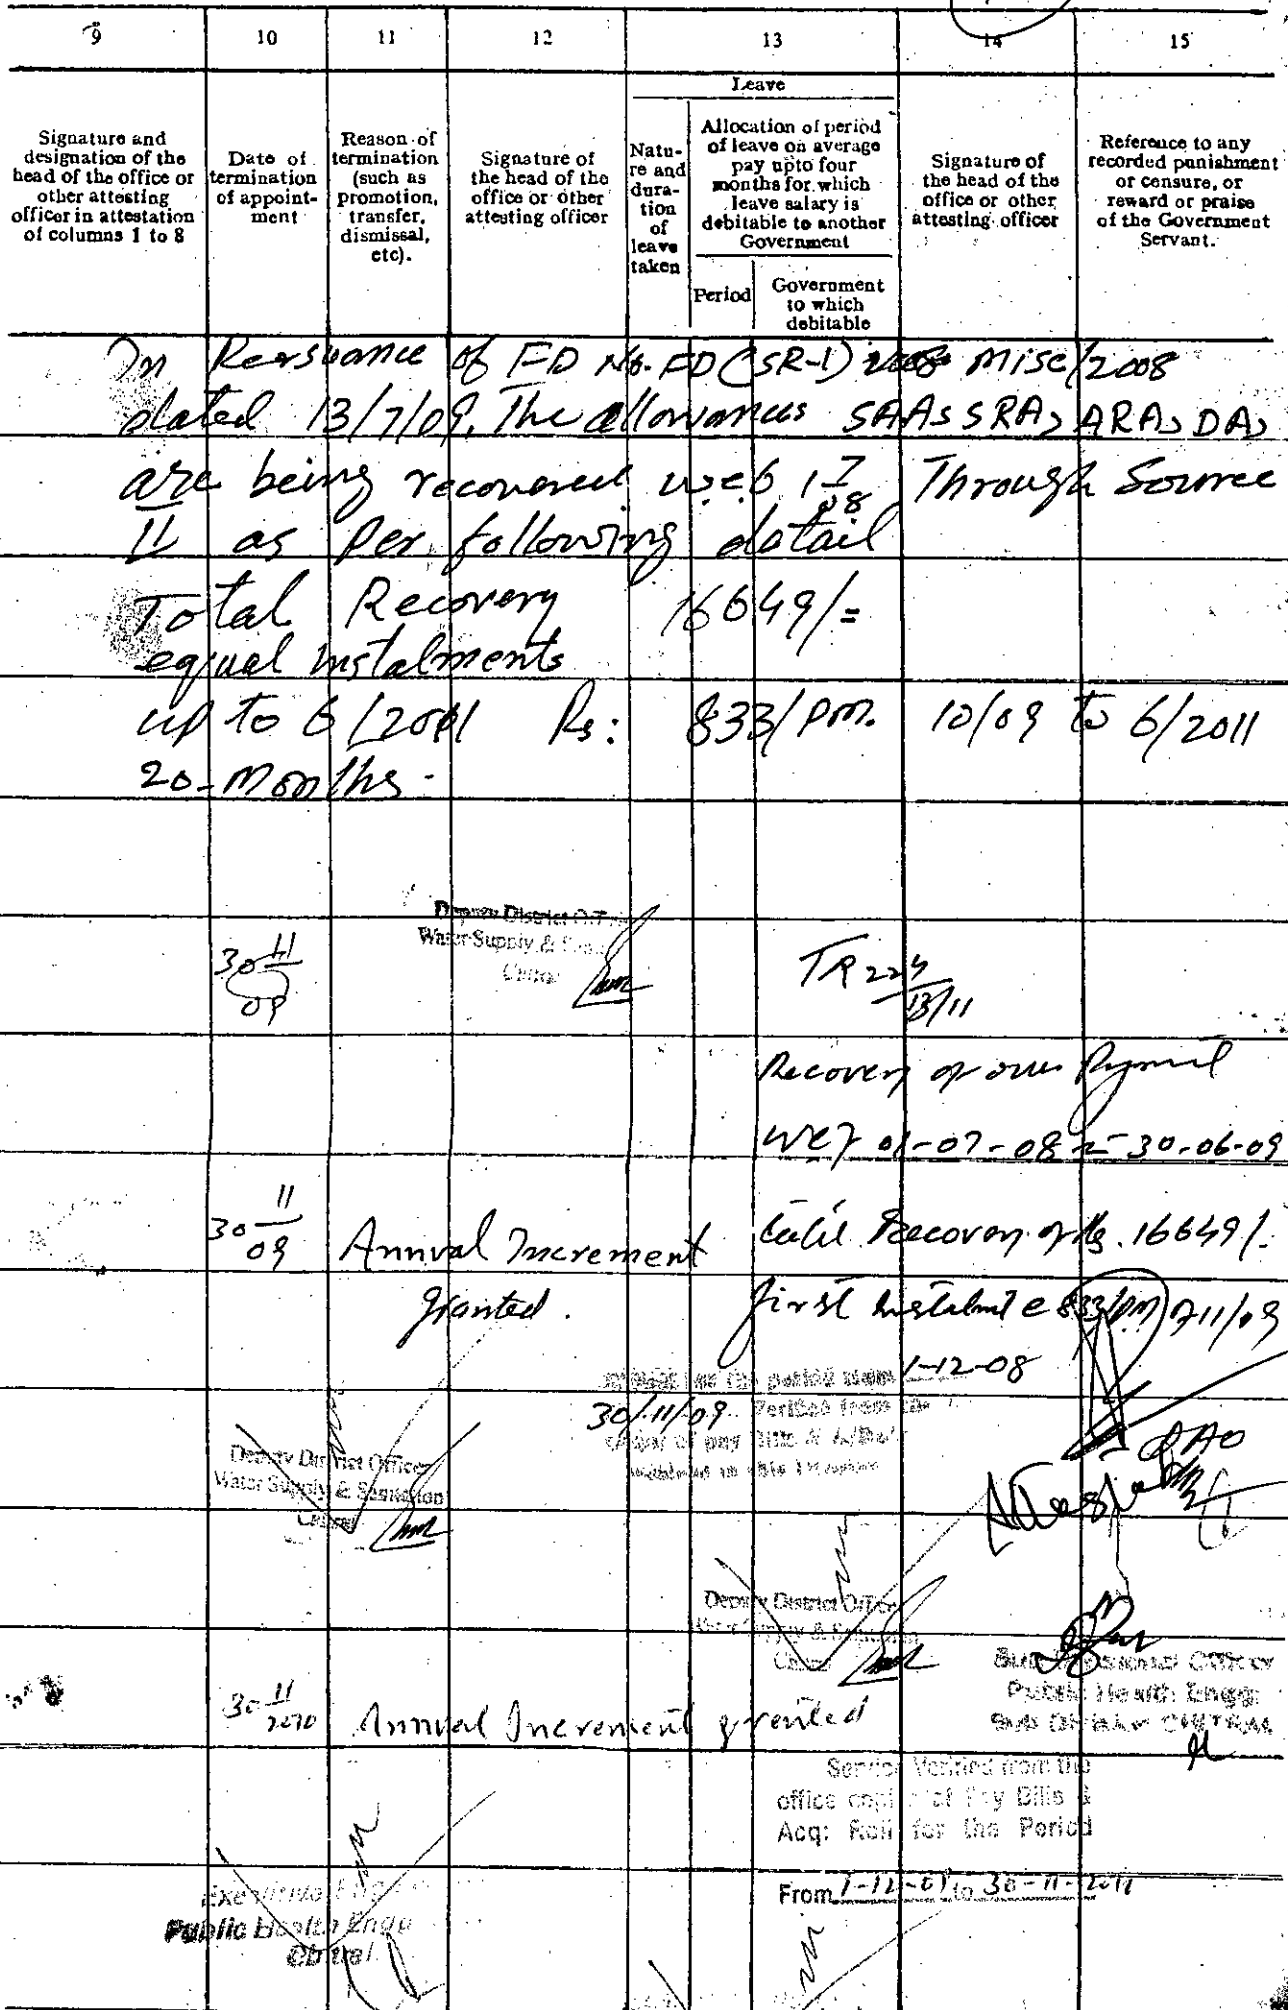 9 10 11 12 13 14 15
Signature and designation of the head of the office or other attesting officer in attestation of columns 1 to 8
Date of termination of appoint-ment
Reason of termination (such as promotion, transfer, dismissal, etc).
Signature of the head of the office or other attesting officer
Leave
Natu-re and dura-tion of leave taken
Allocation of period of leave on average pay upto four months for which leave salary is debitable to another Government
Period
Government to which debitable
Signature of the head of the office or other attesting officer
Reference to any recorded punishment or censure, or reward or praise of the Government Servant.
In Persuance of FD No. FD (SR-1) Misc/2008
dated 13/7/09. The allowances SAA, SRA, ARA, DA,
are being recovered w.e.f 1 7/08 Through Source
II as Per following datail
Total Recovery 16649/=
equal instalments
up to 6/2011 Rs: 833/PM. 10/09 to 6/2011
20-Months.
Deputy District
Water Supply &
30 11/09
TR 224
13/11
Recovery of over Payment
wef 01-07-08 30-06-09
30 11/09 Annual Increment
granted.
Recovery of Rs. 16649/-
first instalment 833/PM 11/09
the period 1-12-08
30/11/09 Verified from
of pay Bills &
DAO
Deputy District Officer
Water Supply & Sanitation
Chitral
Deputy District Officer
Sub Divisional Officer
Public Health Engg:
Sub Division CHITRAL
30 11/2010 Annual Increment grented
Service Verified from the
office copies of Pay Bills &
Acq: Roll for the Period
From 1-12-09 to 30-11-2011
Executive Engg
Public Health Engg
Chitral